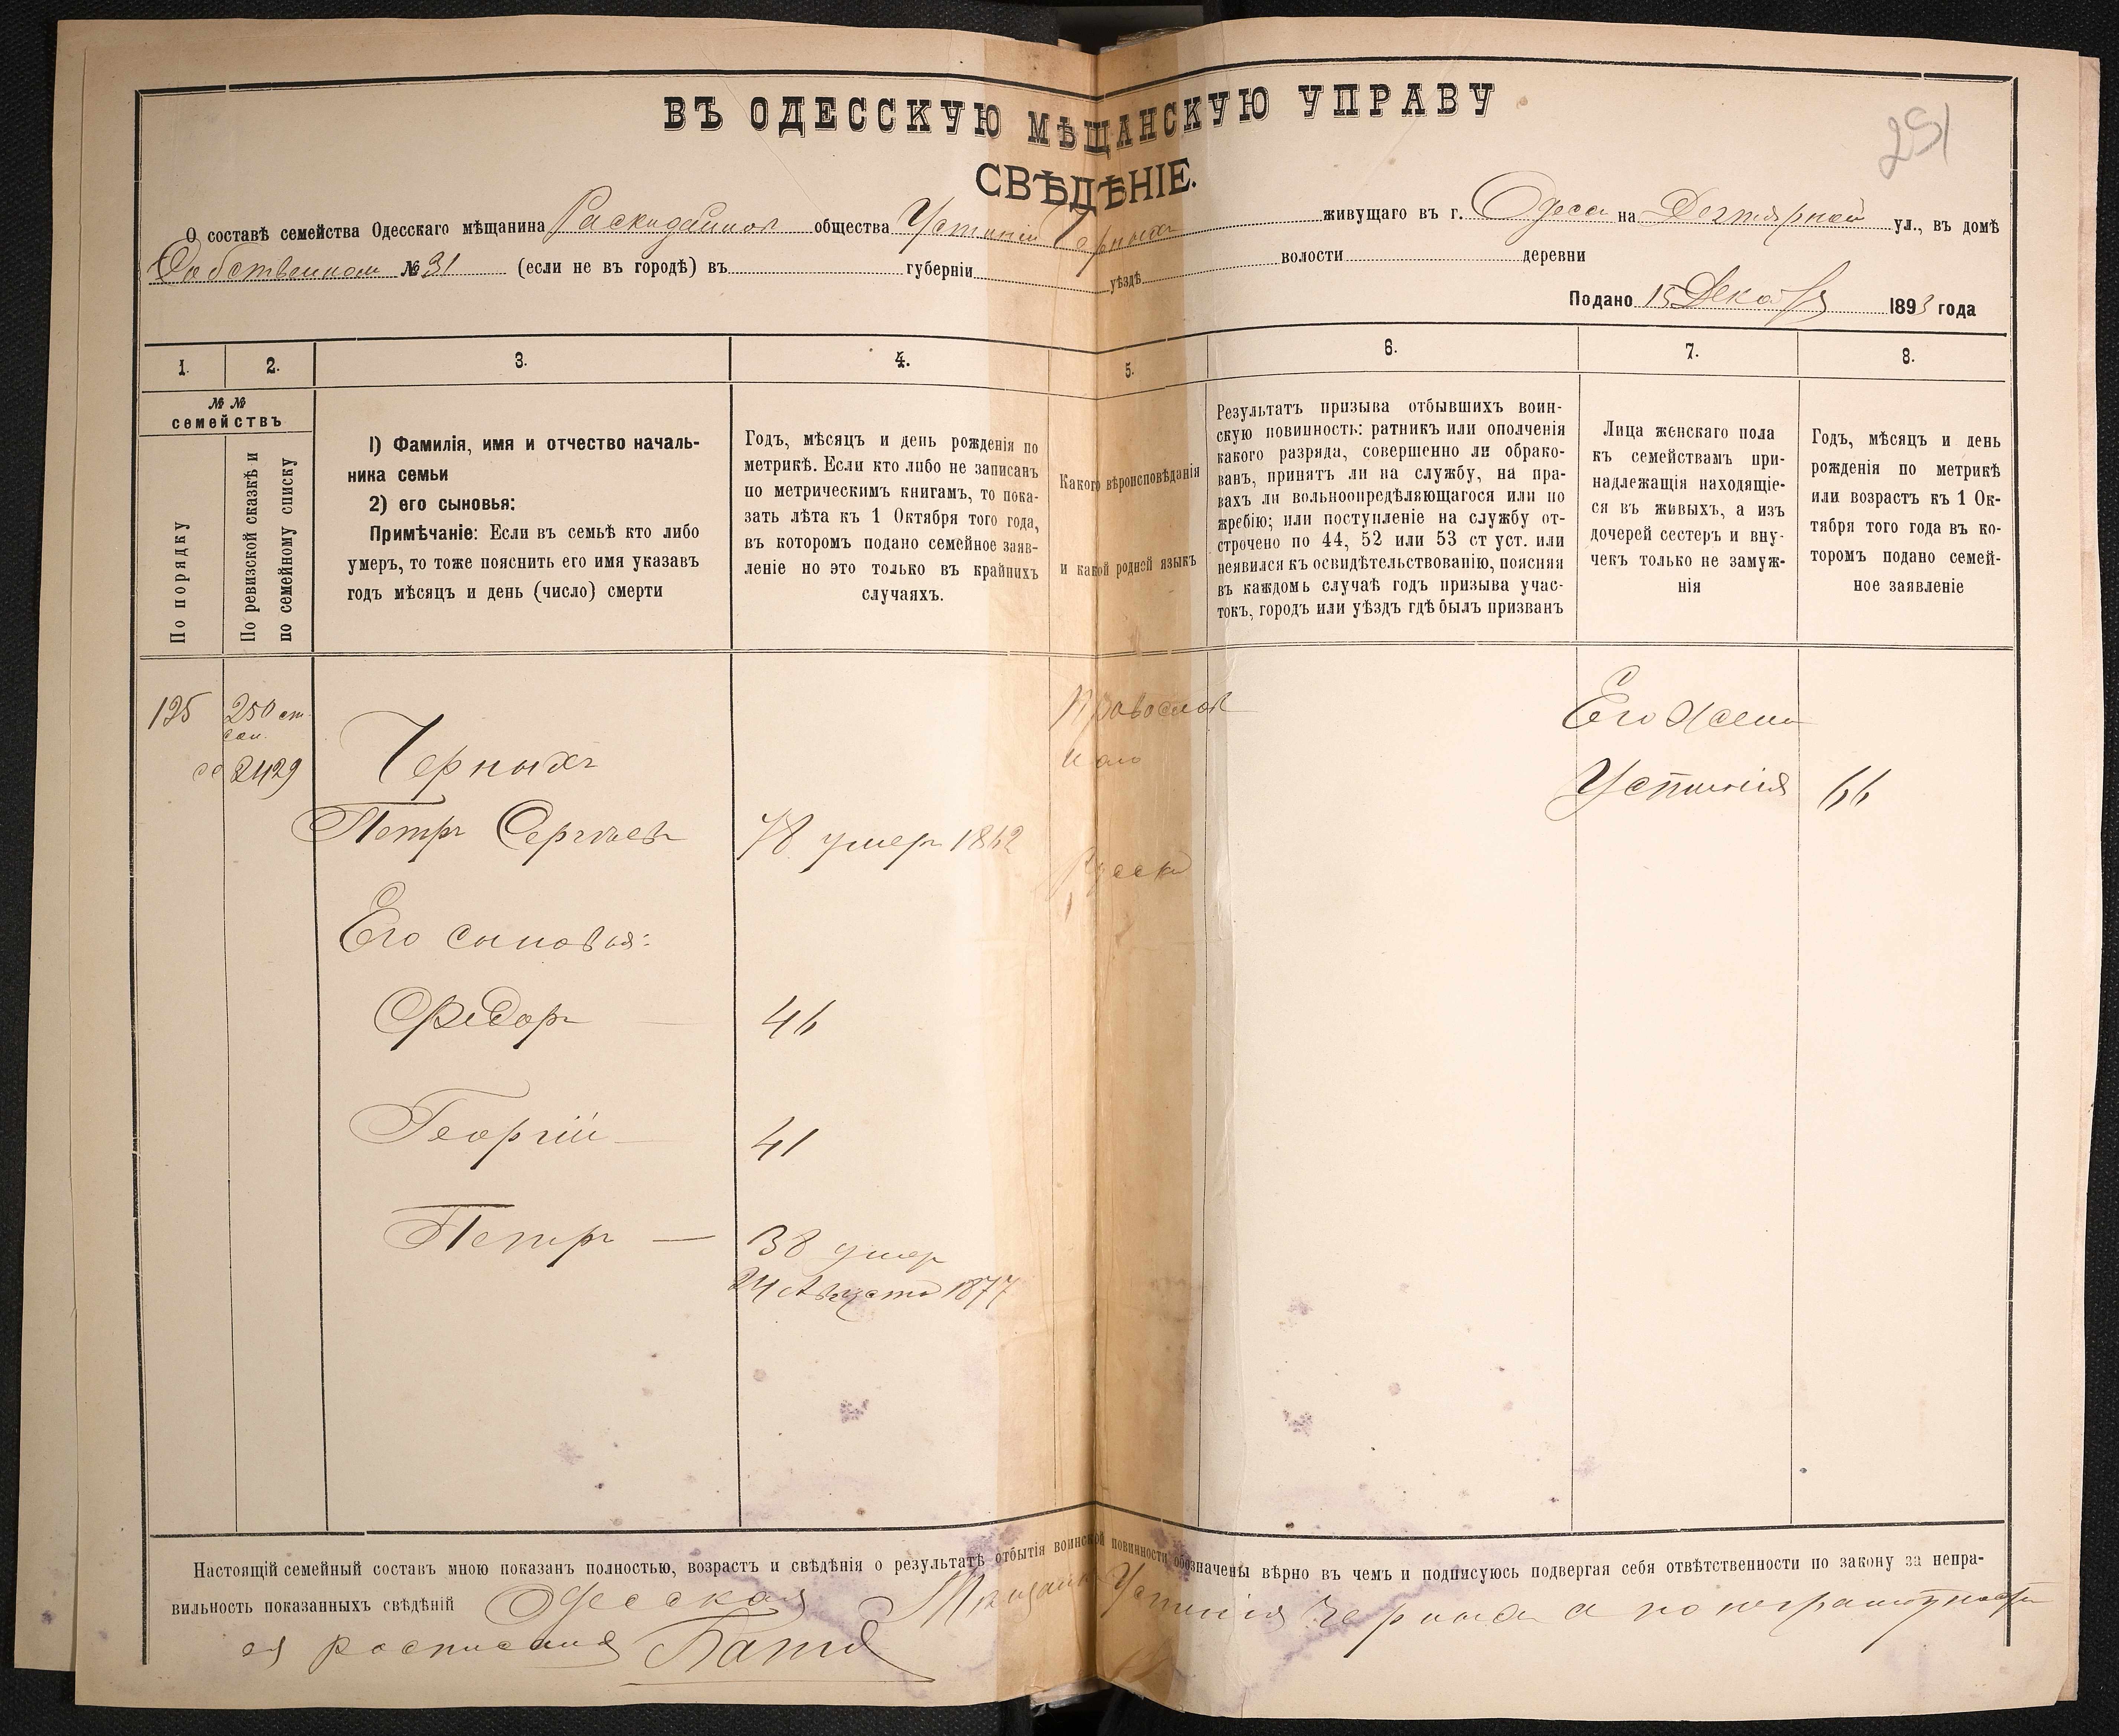 ВЪ ОДЕССКУЮ МѢЩАНСКУЮ УПРАВУ
251
СВѢДѢНІЕ.
О составѣ семейства Одесскаго мѣщанина Раскидайнов общества Устиніи Черныхъ живущаго въ г. Одесса на Дегтярной ул., въ домѣ
Собственном № 31 (если не въ городѣ) въ губерніи уѣздѣ волости деревни
Подано 15 Декабря 1893 года
1. 2. 3. 4. 5. 6. 7. 8.
№ № семействъ
По порядку
По ревизской сказкѣ и
по семейному списку
1) Фамилія, имя и отчество началь-
ника семьи
2) его сыновья:
Примѣчаніе: Если въ семьѣ кто либо
умеръ, то тоже пояснить его имя указавъ
годъ мѣсяцъ и день (число) смерти
Годъ, мѣсяцъ и день рожденія по
метрикѣ. Если кто либо не записанъ
по метрическимъ книгамъ, то пока-
зать лѣта къ 1 Октября того года,
въ которомъ подано семейное заяв-
леніе но это только въ крайнихъ
случаяхъ.
Какого вѣроисповѣданія
и какой родной языкъ
Результатъ призыва отбывшихъ воин-
скую повинность: ратникъ или ополченія
какого разряда, совершенно ли обрако-
ванъ, принятъ ли на службу, на пра-
вахъ ли вольноопредѣляющагося или по
жребію; или поступленіе на службу от-
строчено по 44, 52 или 53 ст уст. или
неявился къ освидѣтельствованію, поясняя
въ каждомъ случаѣ годъ призыва учас-
токъ, городъ или уѣздъ гдѣ былъ призванъ
Лица женскаго пола
къ семействамъ при-
надлежащія находящіе-
ся въ живыхъ, а изъ
дочерей сестеръ и вну-
чекъ только не замуж-
нія
Годъ, мѣсяцъ и день
рожденія по метрикѣ
или возрастъ къ 1 Ок-
тября того года въ ко-
торомъ подано семей-
ное заявленіе
195 250 ст.
2429
Черныхъ
Петръ Сергѣевъ 78 умеръ 1862
Православ
Русск
Его жена
Устинія 66
Его сыновья:
Федоръ 46
Георгій 41
Петръ — 38 умер
24 Августа 1877
Настоящій семейный составъ мною показанъ полностью, возрастъ и свѣдѣнія о результатѣ отбытія воинской повинности обозначены вѣрно въ чемъ и подписуюсь подвергая себя отвѣтственности по закону за непра-
вильность показанныхъ свѣдѣній Одесская Мѣщанка Устинія Черныхъ а по неграмотности
ея росписался